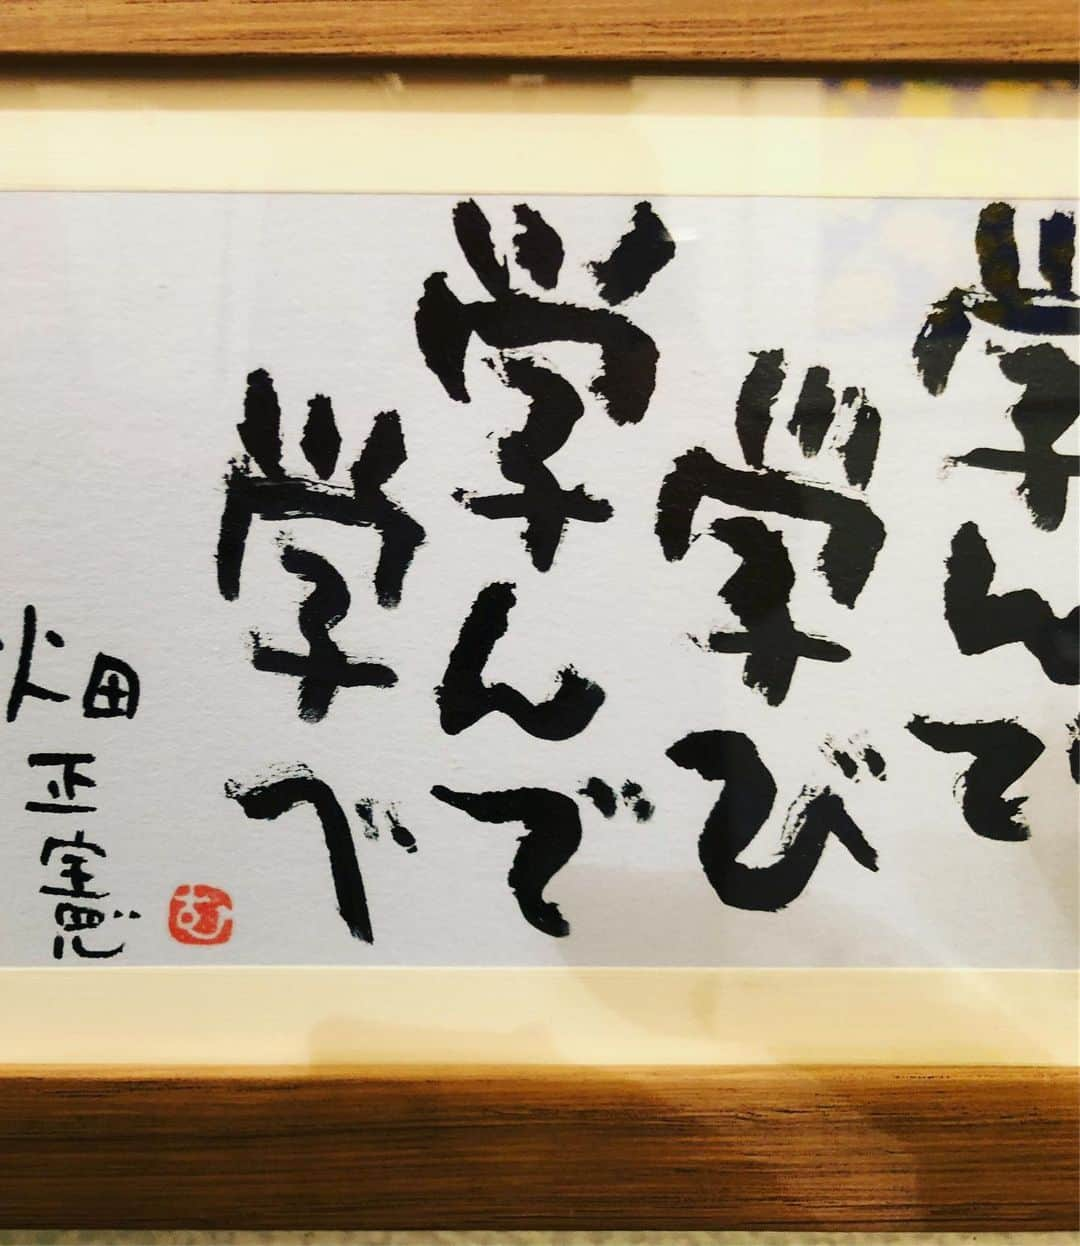 学んで
学び
学んで
学べ
畑正憲